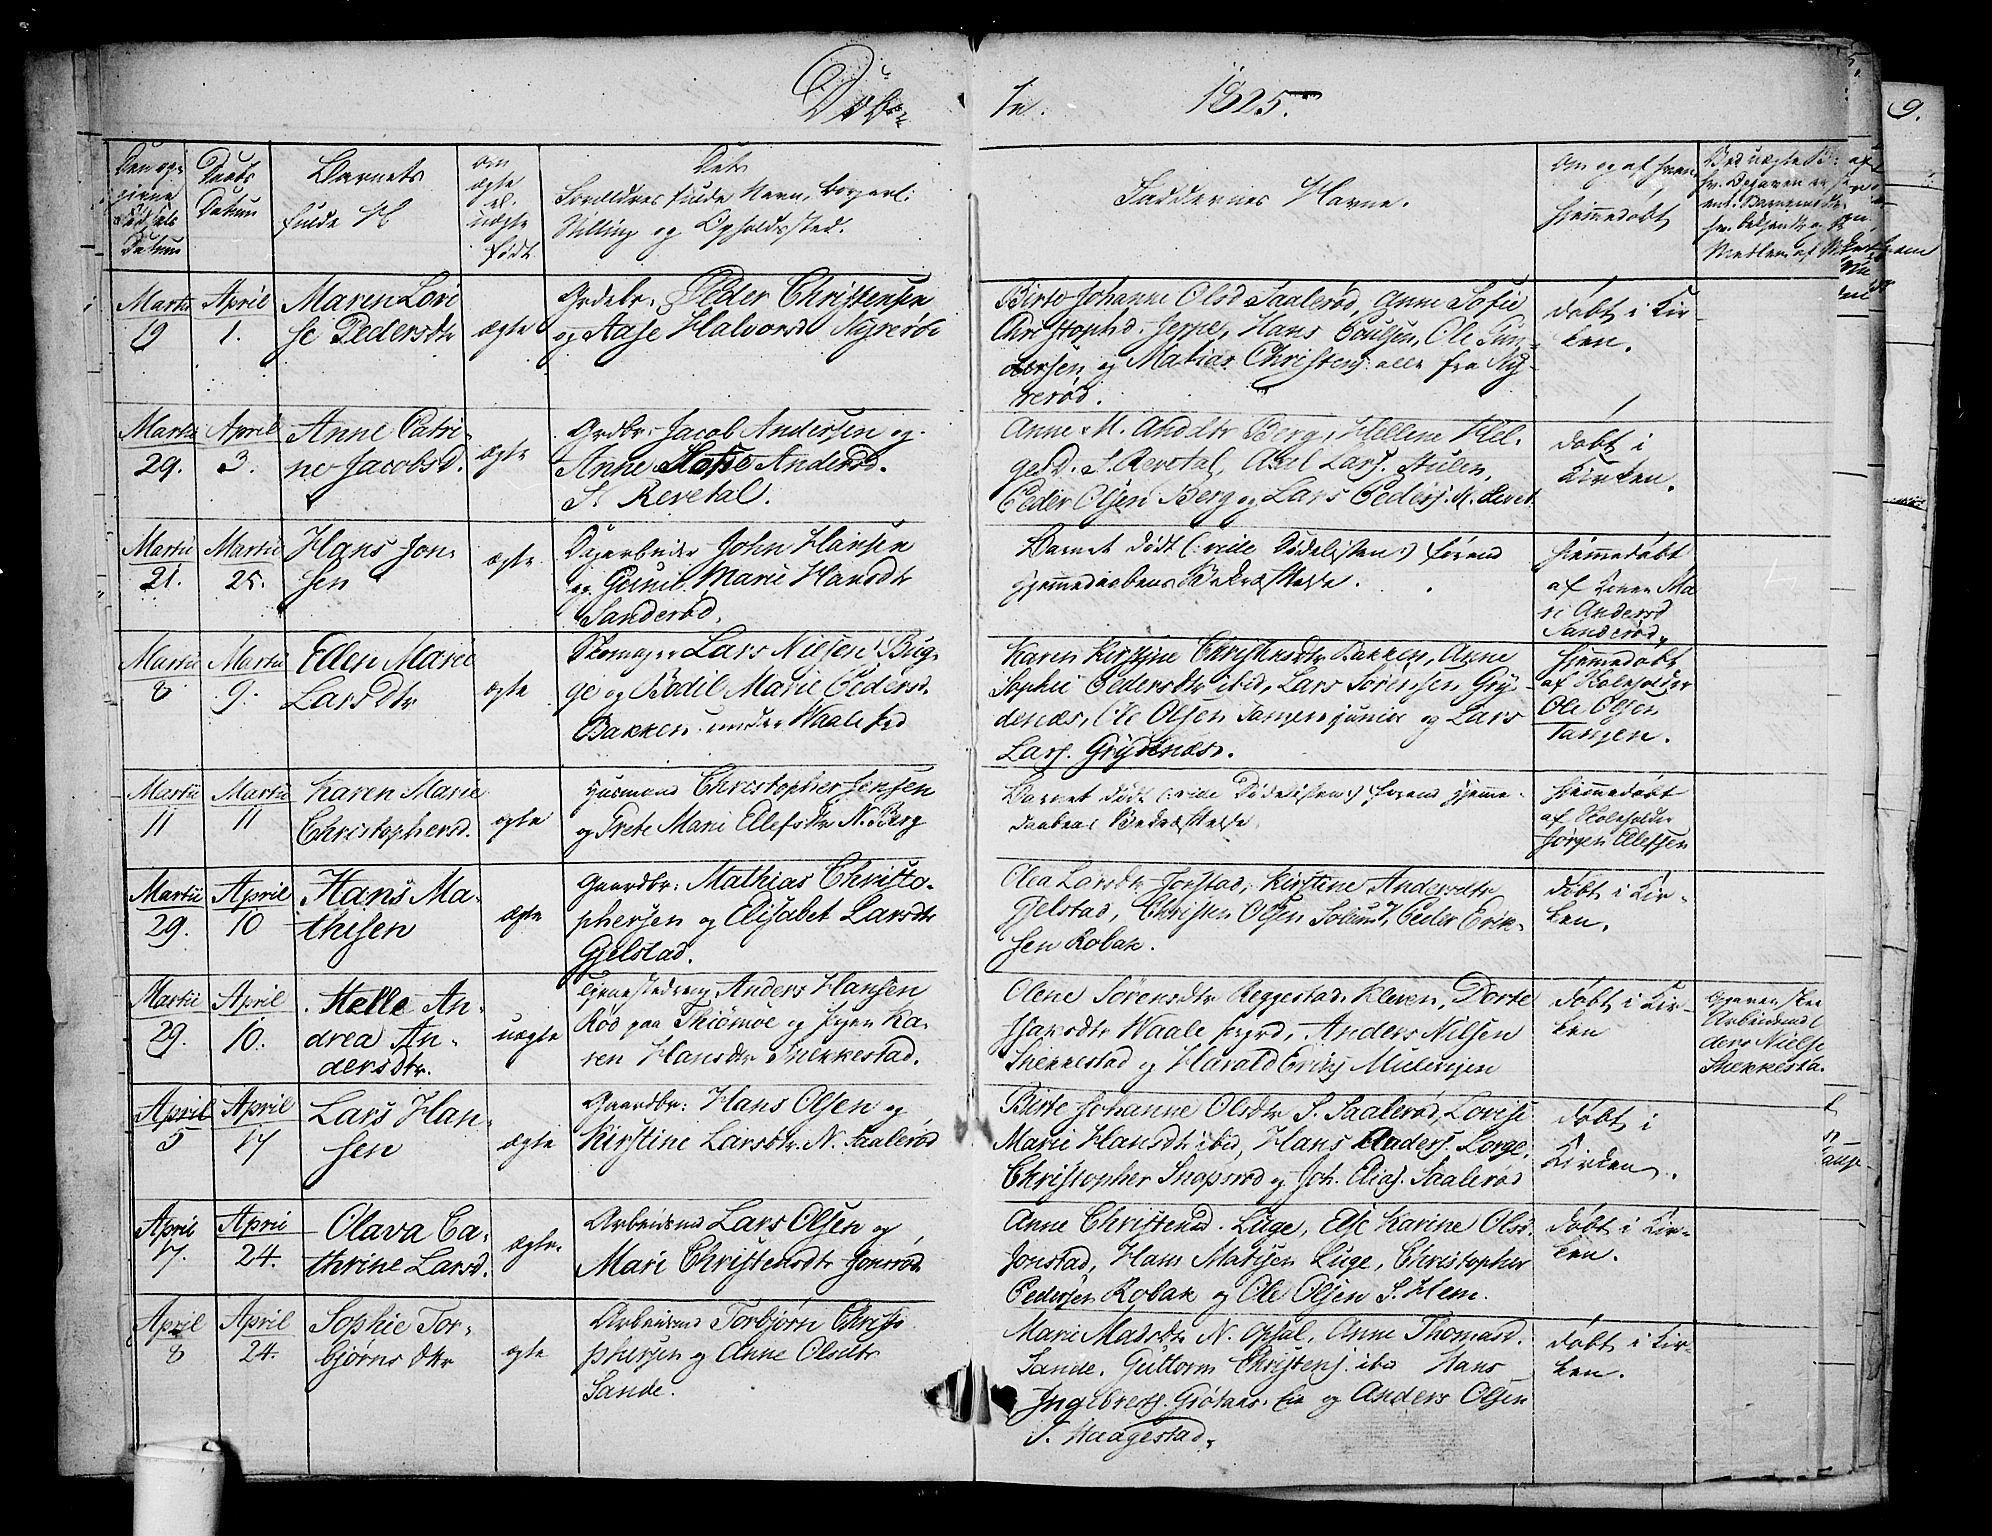 Døbte
1825.
9.
Daabs
Datum
Barnets
fulde N
Om
ægte
el.
uægte
født
Dets
Forældres fulde Navn, borgerl.
Stilling og Opholdssted.
Faddernes Navne.
Om og af hvem
hjemmedøbt
Martii
19
April
1.
Maren Lovi
se Pedersdtr
ægte
Grdbr. Peder Christensen
og Aase Halvorsd. Nyrerød
Birte Johanne Olsd Saalerød, Anne Sofie
Christophd. Hans Poulsen, Ole Gun-
dersen og Matias Christens. alle fra Ny-
rerød.
døbt i Kir-
ken.
Martii
29.
April
3.
Anne Catri-
ne Jacobsd.
ægte
Grdbr. Jacob Andersen og
Anne Andersd.
S. Revetal.
Anne M. Andsdr Berg, Hellene Hel-
gesd. S. Revetal, Axel Lars. Stulen,
Peder Olsen Berg og Lars Peders. N. Revet.
døbt i
Kirken.
Martii
21.
Martii
25.
Hans Jon-
sen
ægte
Dagarbeider John Hansen
og Gunil Marie Hansdtr
Sanderød.
Barnet dødt (: vide Dødelisten :) førend
Hjemmedaabens Bekræftelse.
hjemmedøbt
af Konen Ma
ri Andersd
Sanderød.
Martii
8
Martii
9.
Ellen Marie
Larsdtr
ægte
Skomager Lars Nielsen Bug-
ge og Bodil Marie Pedersd.
Bakken under Waale
Karen Kirstine Christensdtr Bakken, Anne
Sophie Pedersdtr ibid, Lars Sørensen Gry-
denæs, Ole Olsen Tansen junior og Lars
Lars. Grydenæs.
hjemmedøbt
af Skoleholder
Ole Olsen
Tansen.
Martii
11
Martii
11
Karen Marie
Christophersd.
ægte
Husmand Christopher Jensen
og Grete Marie Ellefsdtr N. Berg
Barnet dødt (: vide Dødelisten :) førend Hjemme-
daabens Bekræftelse.
hjemmedøbt
af Skoleholder
Jørgen Ellefsen
Martii
29.
April
10
Hans Ma-
thisen
ægte
Gaardbr: Mathias Christo-
phersen og Elisabet Larsdtr
Gjelstad.
Olea Larsdtr Jonstad, Kirstine Andersdtr
Gjelstad, Christen Olsen Solum, Peder Erik-
sen Robak.
døbt i Kir-
ken.
Martii
29.
April
10.
Helle An-
drea An-
dersdtr.
uægte
Tjenestedreng Anders Hansen
Rød paa Thiømøe og Pigen Ka-
ren Hansdtr Skekkestad.
Olene Sørensdtr Reggestad, Kleven, Dorte
Hansdtr Waale Anders Nilsen
Skekkestad og Harald Eriks.
døbt i Kir-
ken
Arbeidsmd
ders Nielse
Skekkesta.
April
5
April
17
Lars Han-
sen
ægte
Gaardbr: Hans Olsen og
Kirstine Larsdtr. N. Saalerød
Birte Johanne Olsdtr S. Saalerød, Lovise
Marie Hansdtr ibid, Hans Anders. Lorge,
Christopher Snapsrød og Joh. Elias. Saalerød
døbt i
Kirken.
April
17.
April
24.
Olava Ca-
thrine Larsd.
ægte
Arbeidsmd Lars Olsen og
Mari Christensdtr Jonsrød
Anne Christensd. Luge, Else Karine Olsd.
Jonstad, Hans Matisen Luge, Christopher
Pedersen Robak og Ole Olsen S. Hem.
døbt i Kir-
ken.
April
8
April
24.
Sophie Tor-
bjørns dtr
ægte
Arbeidsmd Torbjørn Christo
phersen og Anne Olsdtr
Sande.
Marie Madsdtr N. Opsal, Anne Thomasd.
Sande, Guttorm Christens. ibid Hans
Ingebrets. og Anders Olsen
S. Haagestad.
døbt i Kir-
ken.